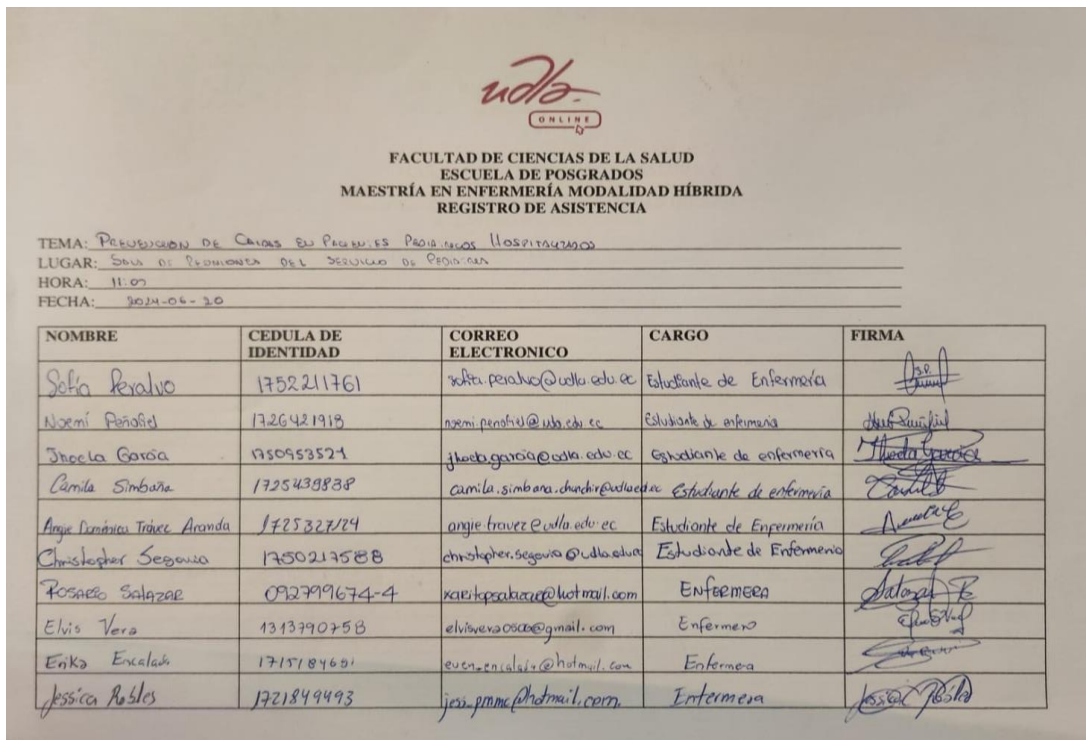 udla
ONLINE
FACULTAD DE CIENCIAS DE LA SALUD
ESCUELA DE POSGRADOS
MAESTRÍA EN ENFERMERÍA MODALIDAD HÍBRIDA
REGISTRO DE ASISTENCIA
TEMA: PREVENCION DE CAIDAS EN PACIENTES PEDIATRICOS HOSPITALIZADOS
LUGAR: SALA DE REUNIONES DEL SERVICIO DE PEDIATRIA
HORA: 11:07
FECHA: 2024-06-20
NOMBRE CEDULA DE IDENTIDAD CORREO ELECTRONICO CARGO FIRMA
Sofía Peralvo 1752211761 sofia.peralvo@udla.edu.ec Estudiante de Enfermería
Noemí Peñafiel 1726421918 noemi.penafiel@udla.edu.ec Estudiante de enfermería
Jhoela García 1750953521 jhoela.garcia@udla.edu.ec Estudiante de enfermería Jhoela García
Camila Simbaña 1725439838 Estudiante de enfermería
Angie Doménica Trávez Aranda angie.travez@udla.edu.ec Estudiante de Enfermería
Christopher Segovia 1750217588 christopher.segovia@udla.edu.ec Estudiante de Enfermería
ROSARIO SALAZAR 092799674-4 ENFERMERA Salazar R
Elvis Vera 1313790758 Enfermero
Erika Encalada Enfermera
Jessica Robles 1721849493 jess_pmmc@hotmail.com. Enfermera Jessica Robles